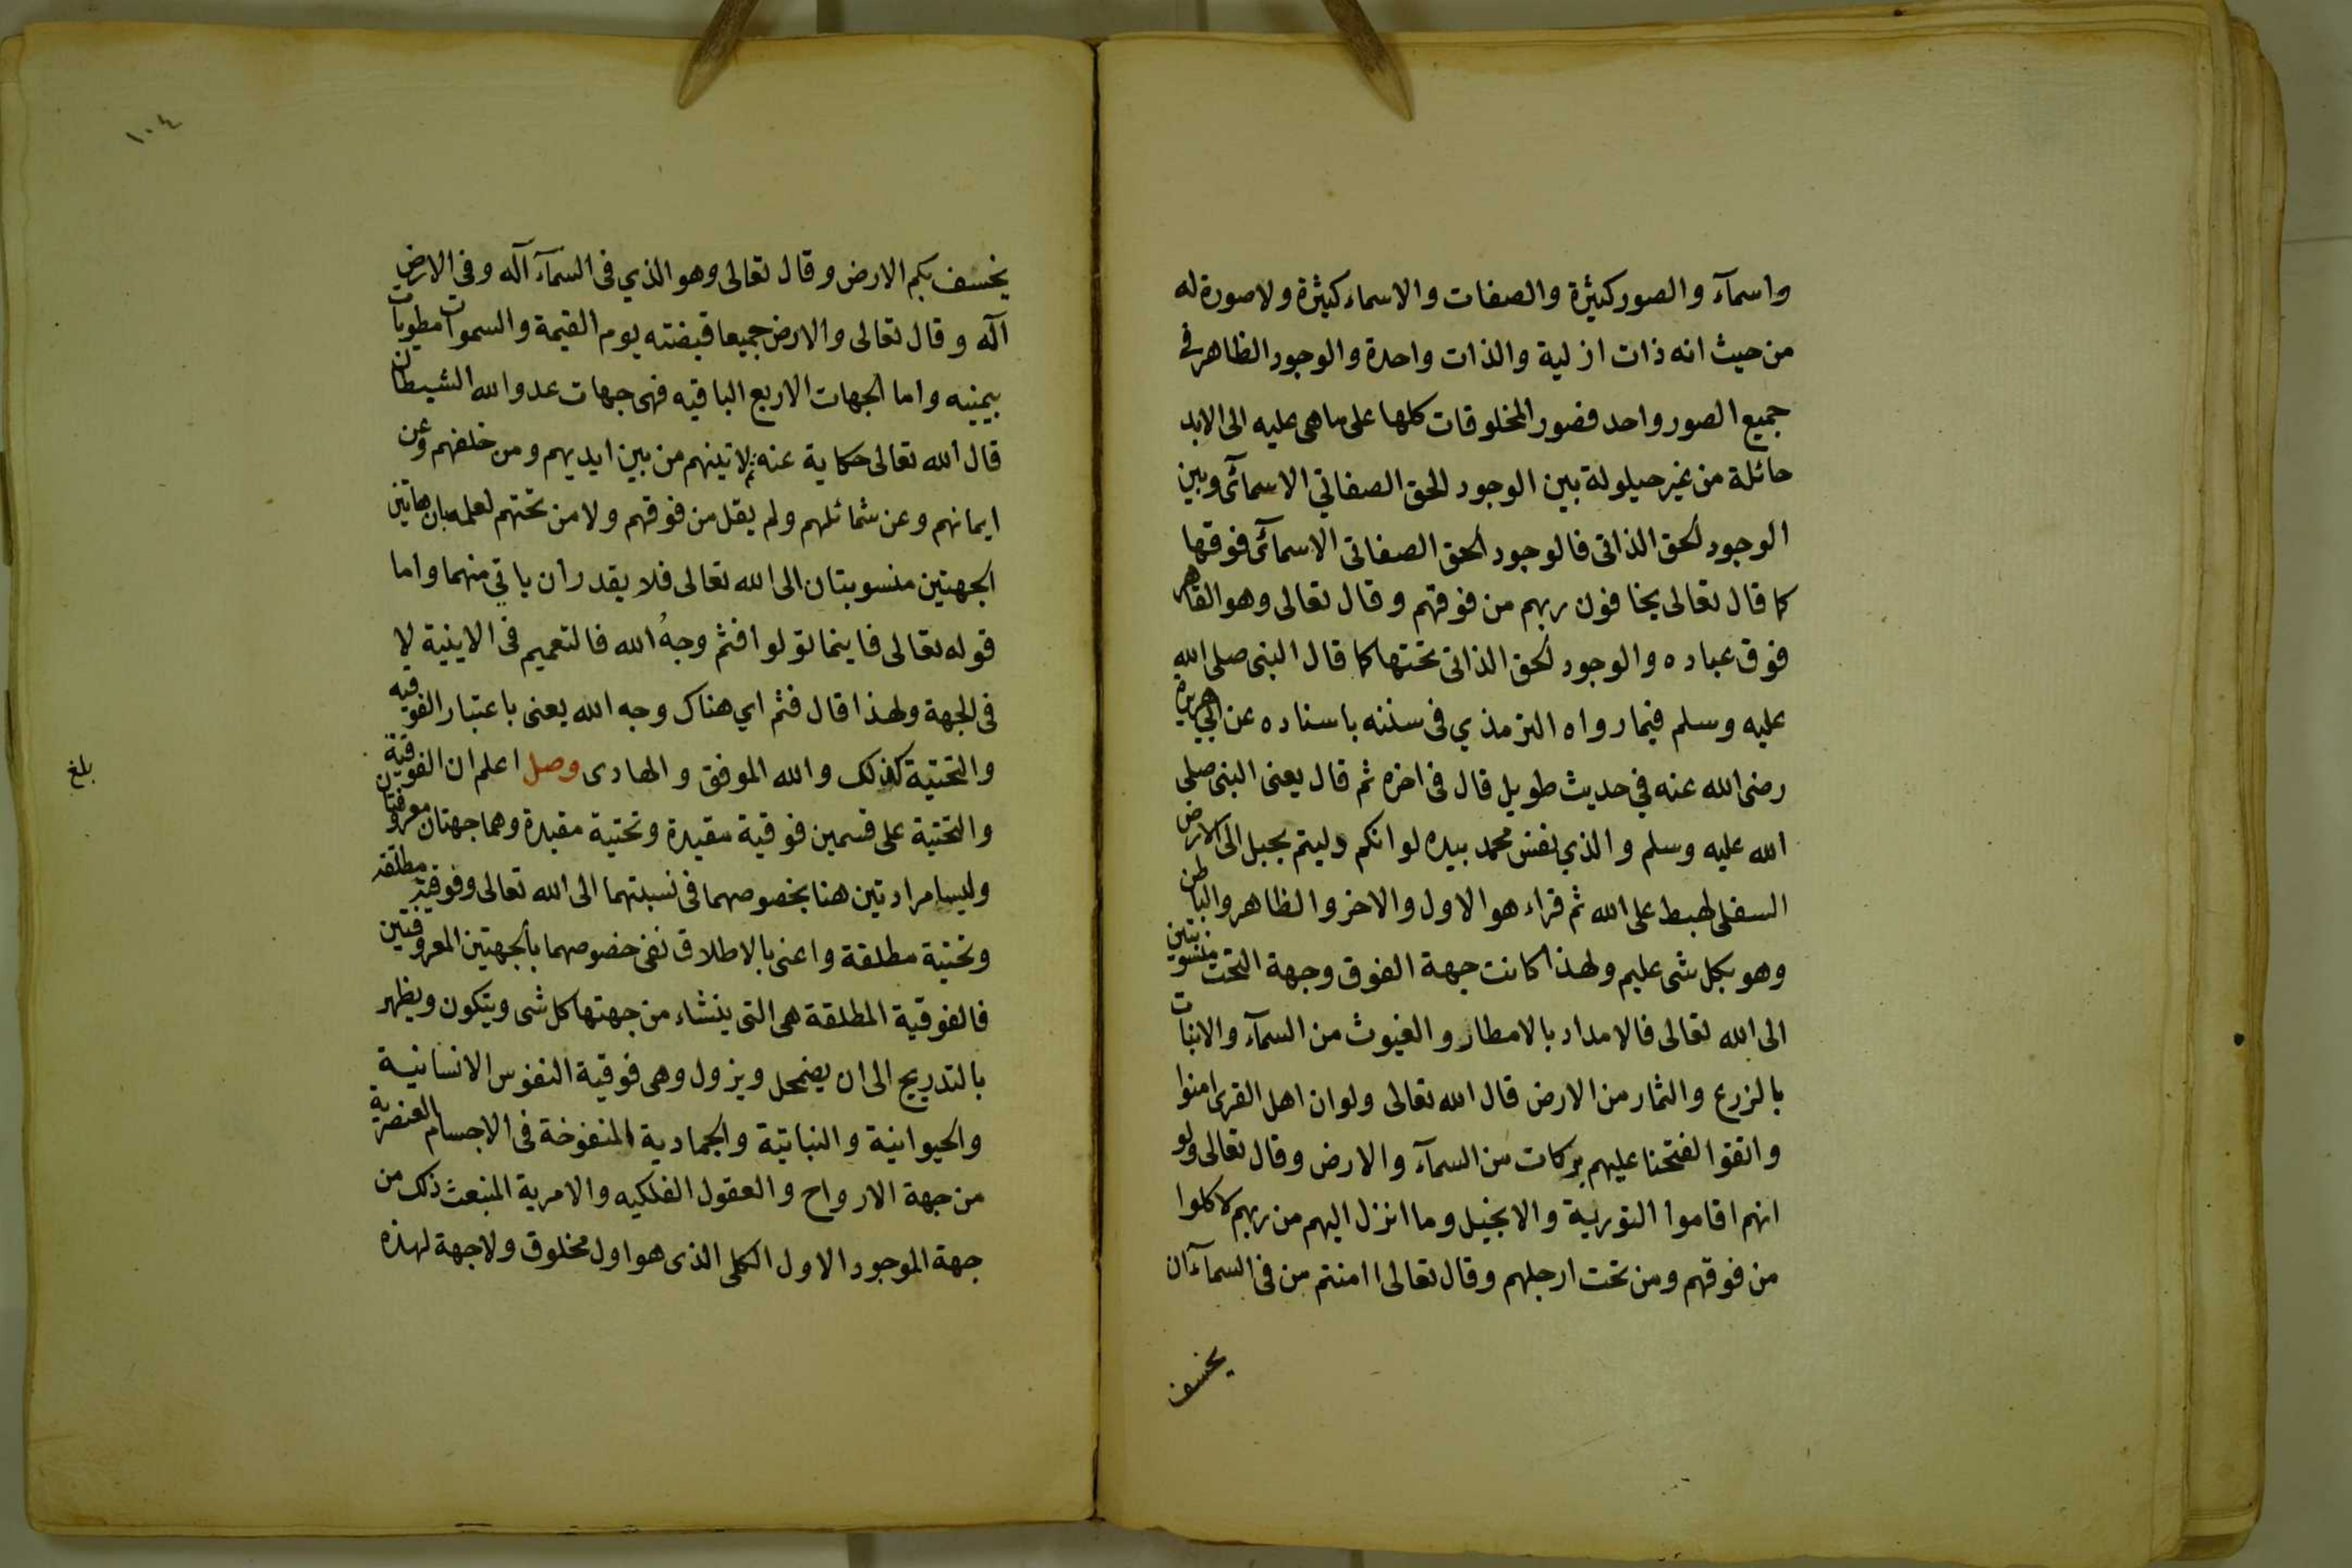 واسمآء والصور كثيرة والصفات والاسماء كثيرة ولا صورة له
من حيث انه ذات ازلية والذات واحدة والوجود الظاهر في
جميع الصور واحد فصور المخلوقات كلها على ما هي عليه الى الابد
حائلة من غير حيلولة بين الوجود الحق الصفاتي الاسمآئى وبين
الوجود الحق الذاتى فالوجود الحق الصفاتى الاسمآئى فوقها
كما قال تعالى يخافون ربهم من فوقهم وقال تعالى وهو القاهر
فوق عباده والوجود الحق الذاتى تحتها كما قال النبى صلى الله
عليه وسلم فيما رواه الترمذي فى سننه باسناده عن ابي هريرة
رضى الله عنه في حديث طويل قال فى اخره ثم قال يعنى النبى صلى
الله عليه وسلم والذي نفس محمد بيده لو انكم دليتم بحبل الى الارض
السفلى لهبط على الله ثم قراء هو الاول والاخر والظاهر والباطن
وهو بكل شى عليم ولهذا كانت جهة الفوق وجهة التحت منسوبتين
الى الله تعالى فالامداد بالامطار والغيوث من السمآء والانبات
بالزرع والثمار من الارض قال الله تعالى ولو ان اهل القرى امنوا
واتقوا لفتحنا عليهم بركات من السمآء والارض وقال تعالى ولو
انهم اقاموا التورية والانجيل وما انزل اليهم من ربهم لاكلوا
من فوقهم ومن تحت ارجلهم وقال تعالى اامنتم من فى السمآء ان
يخسف
١٠٤
يخسف بكم الارض وقال تعالى وهو الذي فى السمآء آله وفى الارض
آله وقال تعالى والارض جميعا قبضته يوم القيمة والسموات مطويات
بيمينه واما الجهات الاربع الباقيه فهى جهات عدو الله الشيطان
قال الله تعالى حكاية عنه ثم لاتينهم من بين ايديهم ومن خلفهم وعن
ايمانهم وعن شمائلهم ولم يقل من فوقهم ولا من تحتهم لعلمه بان هاتين
الجهتين منسوبتان الى الله تعالى فلا يقدر ان ياتي منهما واما
قوله تعالى فاينما تولوا فثم وجهُ الله فالتعميم فى الاينية لا
فى الجهة ولهذا قال فثم اي هناك وجه الله يعنى باعتبار الفوقيه
والتحتية كذلك والله الموفق والهادى وصل اعلم ان الفوقية
والتحتية على قسمين فوقية مقيدة وتحتية مقيدة وهما جهتان معروفتان
وليسا مرادتين هنا بخصوصهما فى نسبتهما الى الله تعالى وفوقية مطلقة
وتحتية مطلقة واعنى بالاطلاق نفى خصوصهما بالجهتين المعروفتين
فالفوقية المطلقة هى التى ينشاء من جهتها كل شى ويتكون ويظهر
بالتدريج الى ان يضمحل ويزول وهى فوقية النفوس الانسانية
والحيوانية والنباتية والجمادية المنفوخة فى الاجسام العنصرية
من جهة الارواح والعقول الفلكيه والامرية المنبعث ذلك من
جهة الموجود الاول الكلى الذى هو اول مخلوق ولا جهة لهذه
بلغ